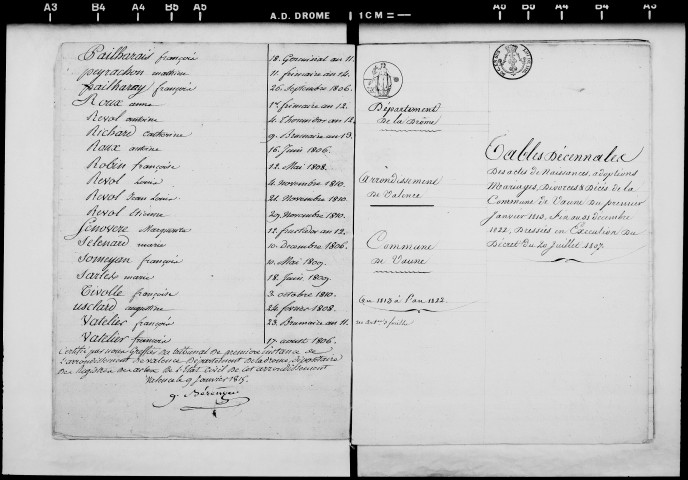 A3 B4 A4 B5 A5
A.D. DROME
1 CM =
Pailharais françois 18. Germinal an 11.
peyrachon mathieu 11. frimaire an 14.
pailharay françois 26. Septembre 1806.
Roux anne 1er frimaire an 12.
Revol antoine 4. Thermidor an 12
Richard Catherine 9. Brumaire an 13.
Roux antoine 16. Juin 1806.
Robin françoise 12. Mai 1808.
Revol Louis 4. novembre 1810.
Revol Jean Louis 21. Novembre 1810.
Revol Etienne 29. Novembre 1810.
Senovere Marguerite 12. fructidor an 12.
Setenard marie 10. decembre 1806.
Someyan françois 10. Mai 1809.
Sartes marie 18. Juin 1809.
Tivolle françoise 3. octobre 1810.
usclard augustine 24. fevrier 1808.
Vatelier françois 23. Brumaire an 11.
Vatelier francois 17. aoust 1806.
Certifié par nous Greffier du tribunal de premiere instance de
l'arrondissement de valence Département de la drome, dépositaire
des Registres des actes de l'Etat civil de cet arrondissement
Valence le 9 Janvier 1815.
Bérenger
Département
de la Drôme
Arrondissement
de Valence
Commune
de Vaune
De 1813 à l'an 1822.
Tables Décennales
Des actes de Naissances, adoptions
Mariages, Divorces & Décès de la
Commune de Vaune du premier
Janvier 1813, fin au 31 decembre
1822, Dressées en Execution du
Décret du 20 Juillet 1807.